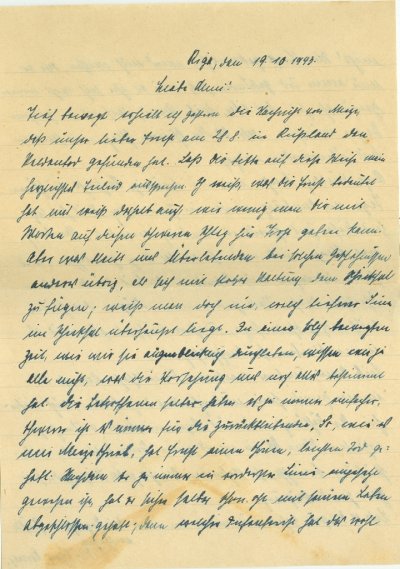 Riga, den 19.10.1943.
Liebe Anni!
Tief bewegt erhielt ich gestern die Nachricht von
daß unser lieber Ernst am 28.8. in Rußland den
Heldentod gefunden hat. Laß dir bitte auf diese Weise mein
herzlichstes Beileid aussprechen. Ich weiß, was dir Ernst bedeutet
hat und weiß deshalb auch, wie wenig man dir mit
Worten auf deinen schweren Weg zum Trost geben kann.
Aber was bleibt uns Überlebenden bei solchen
anderes übrig, als sich mit Haltung dem Schicksal
zu fügen; weiß man doch nie, welch tieferer Sinn
im Schicksal überhaupt liegt. In einer solch bewegten
Zeit, wie wir sie augenblicklich durchleben, wissen wir ja
alle nicht, was die Vorsehung uns noch alles bestimmt
hat. Die Betroffenen selber haben es ja immer einfacher,
schwerer ist es immer für die Zurückbleibenden. So, wie es
mir schrieb, hat Ernst einen schönen, leichten Tod ge-
habt. Nachdem er ja immer in vorderster Linie eingesetzt
gewesen ist, hat er sicher selber schon oft mit seinem Leben
abgeschlossen gehabt; denn welcher Infanterist hat das wohl